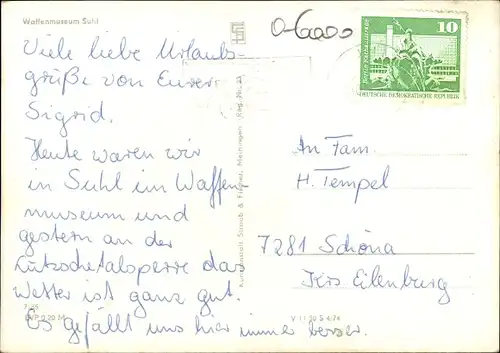 Waffenmuseum Suhl
0-6000
10
Berlin, Neptunbrunnen
DEUTSCHE DEMOKRATISCHE REPUBLIK
Viele liebe Urlaubs-
grüße von Eurer
Sigrid.
Heute waren wir
in Suhl im Waffen-
museum und
gestern an der
Lütschetalsperre das
Wetter ist ganz gut.
Es gefällt uns hier immer besser.
An Fam.
H. Tempel
7281 Schöna
Krs Eilenburg
Straub & Fischer, Meiningen
EVP 0,20 M
V 11 50 S 4/74